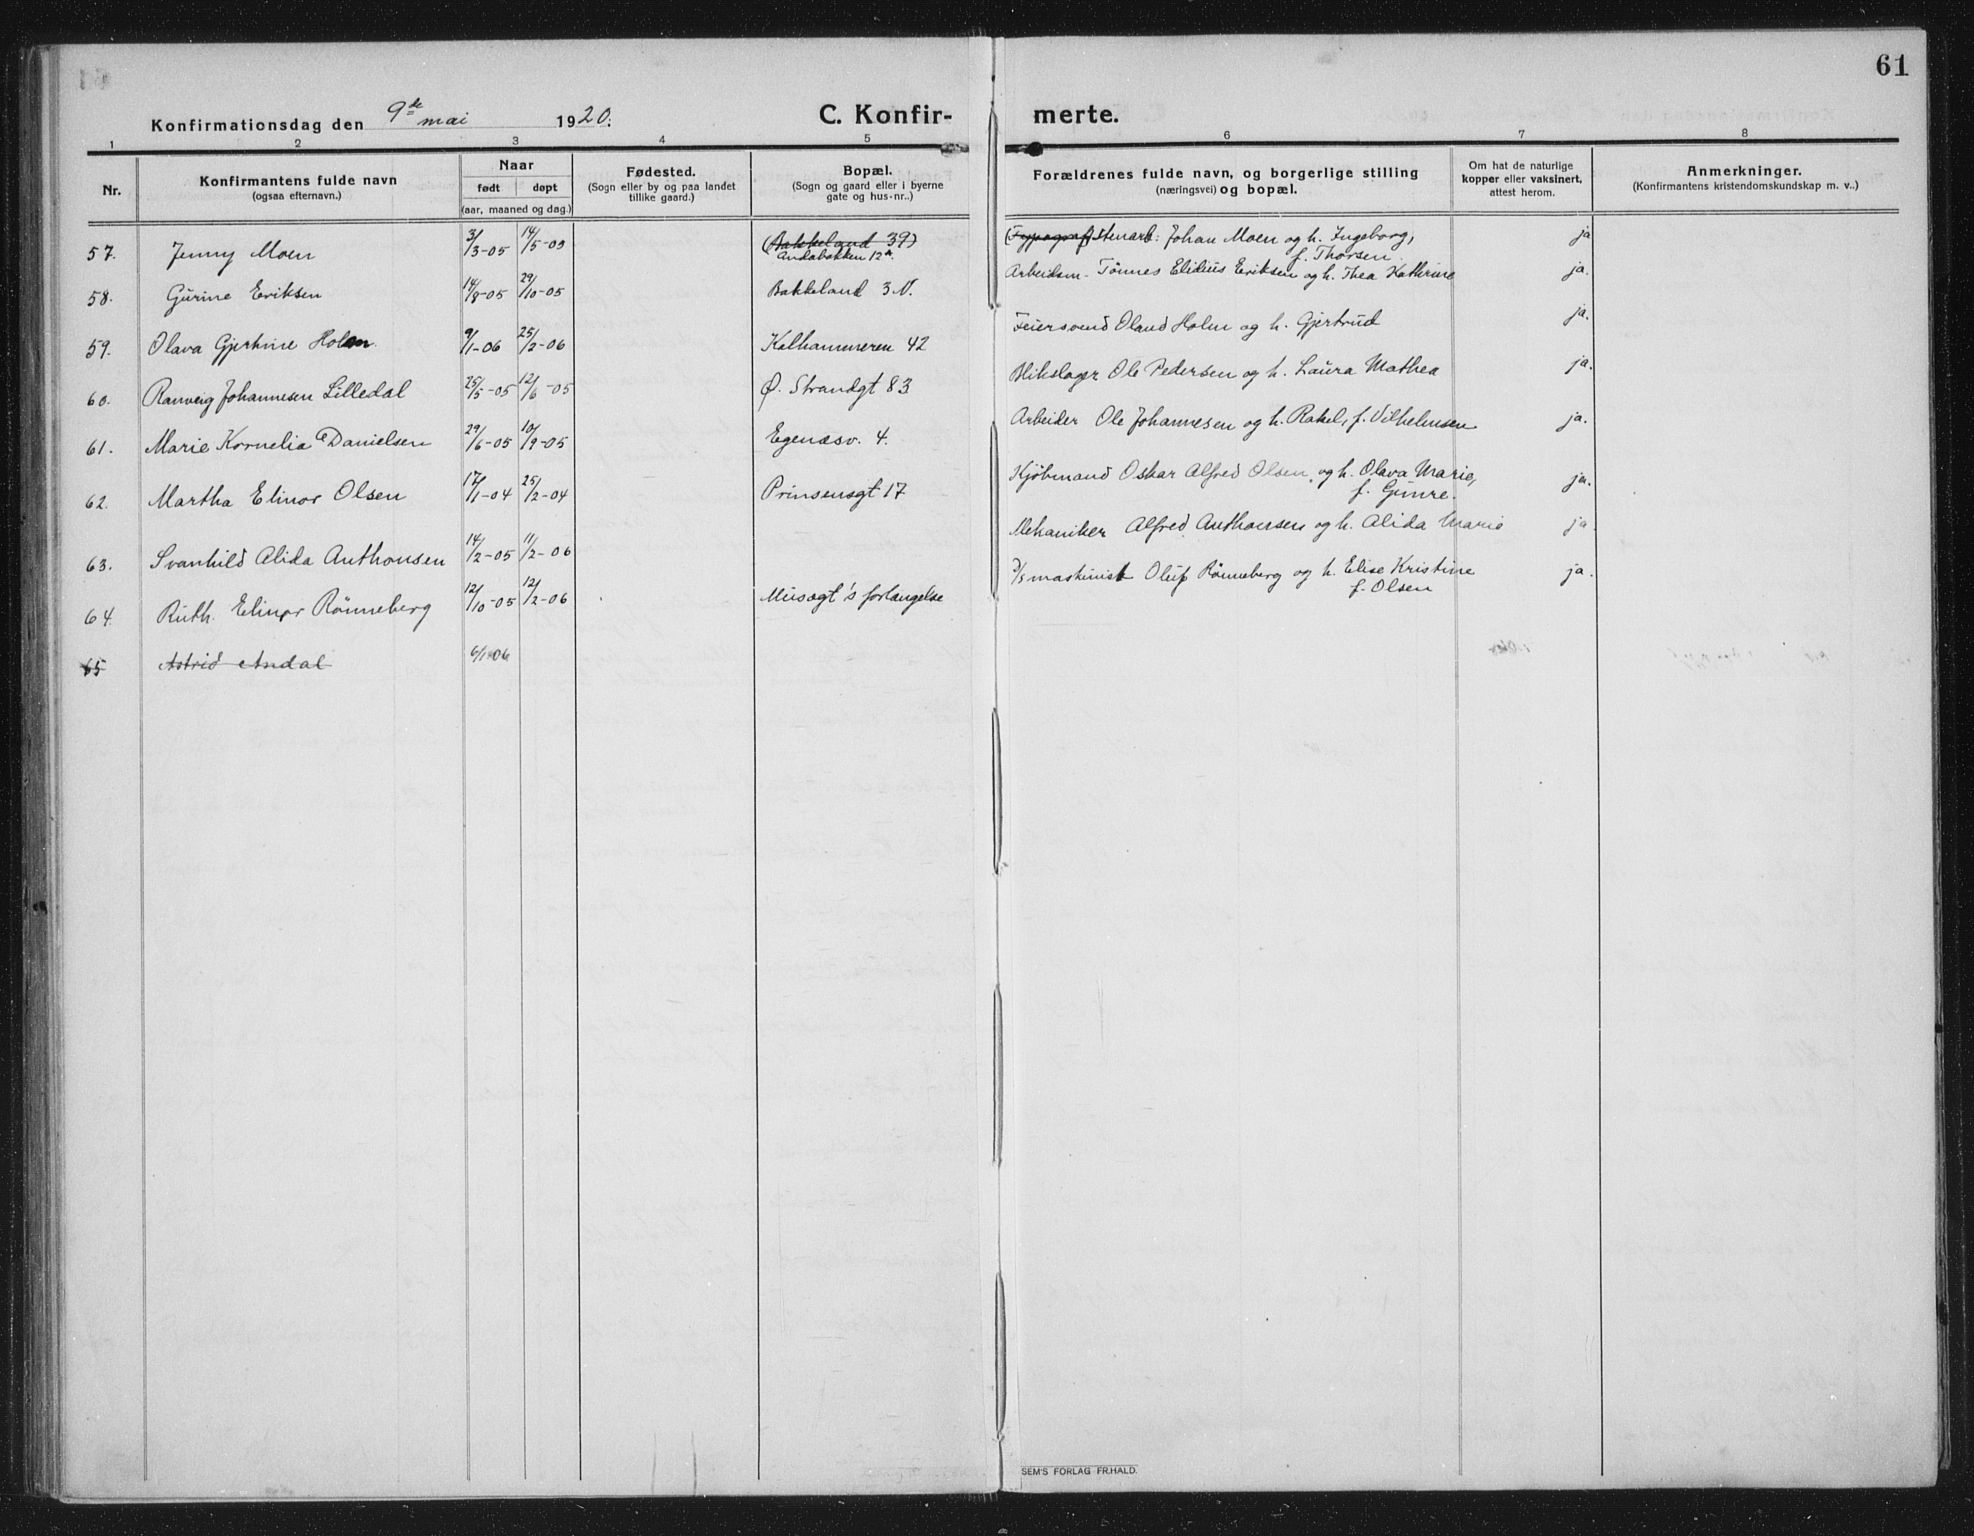 61
Konfirmationsdag den 9de mai 1920.
C. Konfir- merte.
1 2 3 4 5 6 7 8
Nr.
Konfirmantens fulde navn
(ogsaa efternavn.)
Naar
født døpt
(aar, maaned og dag.)
Fødested.
(Sogn eller by og paa landet
tillike gaard.)
Bopæl.
(Sogn og gaard eller i byerne
gate og hus-nr..)
Forældrenes fulde navn, og borgerlige stilling
(næringsvei) og bopæl.
Om hat de naturlige
kopper eller vaksinert,
attest herom.
Anmerkninger.
(Konfirmantens kristendomskundskap m. v..)
57. Jenny Moen 3/3-05 14/5-05 (Bakkeland 39) (Typograf) Stenarb: Johan Moen og h. Ingeborg, ja
Andabakken 12a f. Thorsen.
58. Gurine Eriksen 14/8-05 29/10-05 Bakkeland 3 N. Arbeidsm. Tönnes Elidius Eriksen og h. Thea Kathrine ja.
59. Olava Gjertine Holm. 9/1-06 25/2-06 Kalhammeren 42 Feiersvend Oland Holm og h. Gjertrud ja.
60. Ranveig Johannesen Lilledal 25/5-05 12/6-05 Ø. Strandgt 83 Blikslager Ole Pedersen og h. Laura Mathea ja.
61. Marie Kornelia Danielsen 29/6-05 10/9-05 Egenæsv. 4. Arbeider Ole Johannesen og h. Rakel, f. Vilhelmsen ja.
62. Martha Elinor Olsen 17/1-04 25/2-04 Prinsensgt 17 Kjöbmand Oskar Alfred Olsen, og h. Olava Marie, ja.
f. Gimre.
63. Svanhild Alida Anthonsen 14/2-05 11/2-06 Mekaniker Alfred Anthonsen og h. Alida Marie ja
64. Ruth. Elinor Rönneberg 12/10-05 12/2-06 Musegt's forlængelse D/s maskinist Oluf Rönneberg og h. Elise Kristine ja.
f. Olsen
65 Astrid Andal 6/1 06
SEM'S FORLAG FR.HALD.